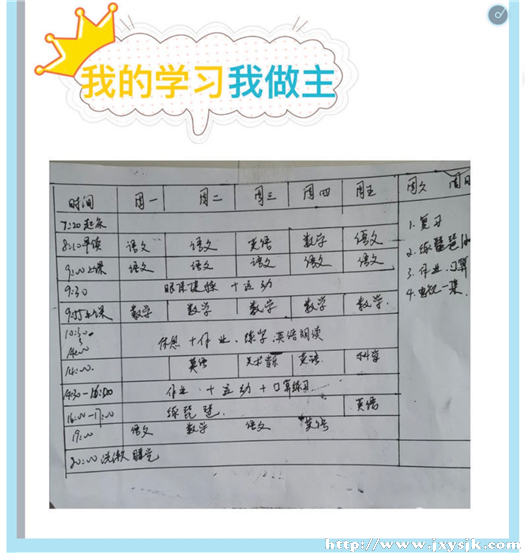 我的学习我做主
时间 周一 周二 周三 周四 周五 周六 周日
7:20 起床
8:10 早读 语文 语文 英语 数学 语文
9:00 上课 语文 语文 语文 语文 语文
9:30 眼保健操 + 运动
上课 数学 数学 数学 数学 数学
10:30
14:00 休息 + 作业、练字、英语朗读
14:00 英语 美术 音乐 英语 科学
14:30-16:00 作业 + 运动 + 口算练习
16:00-17:00 练琵琶 英语
19:00 语文 数学 语文 英语
20:00 洗漱 睡觉
1. 复习
2. 练琵琶
3. 作业、口算
4. 电视一集
http://www.jxysjk.com